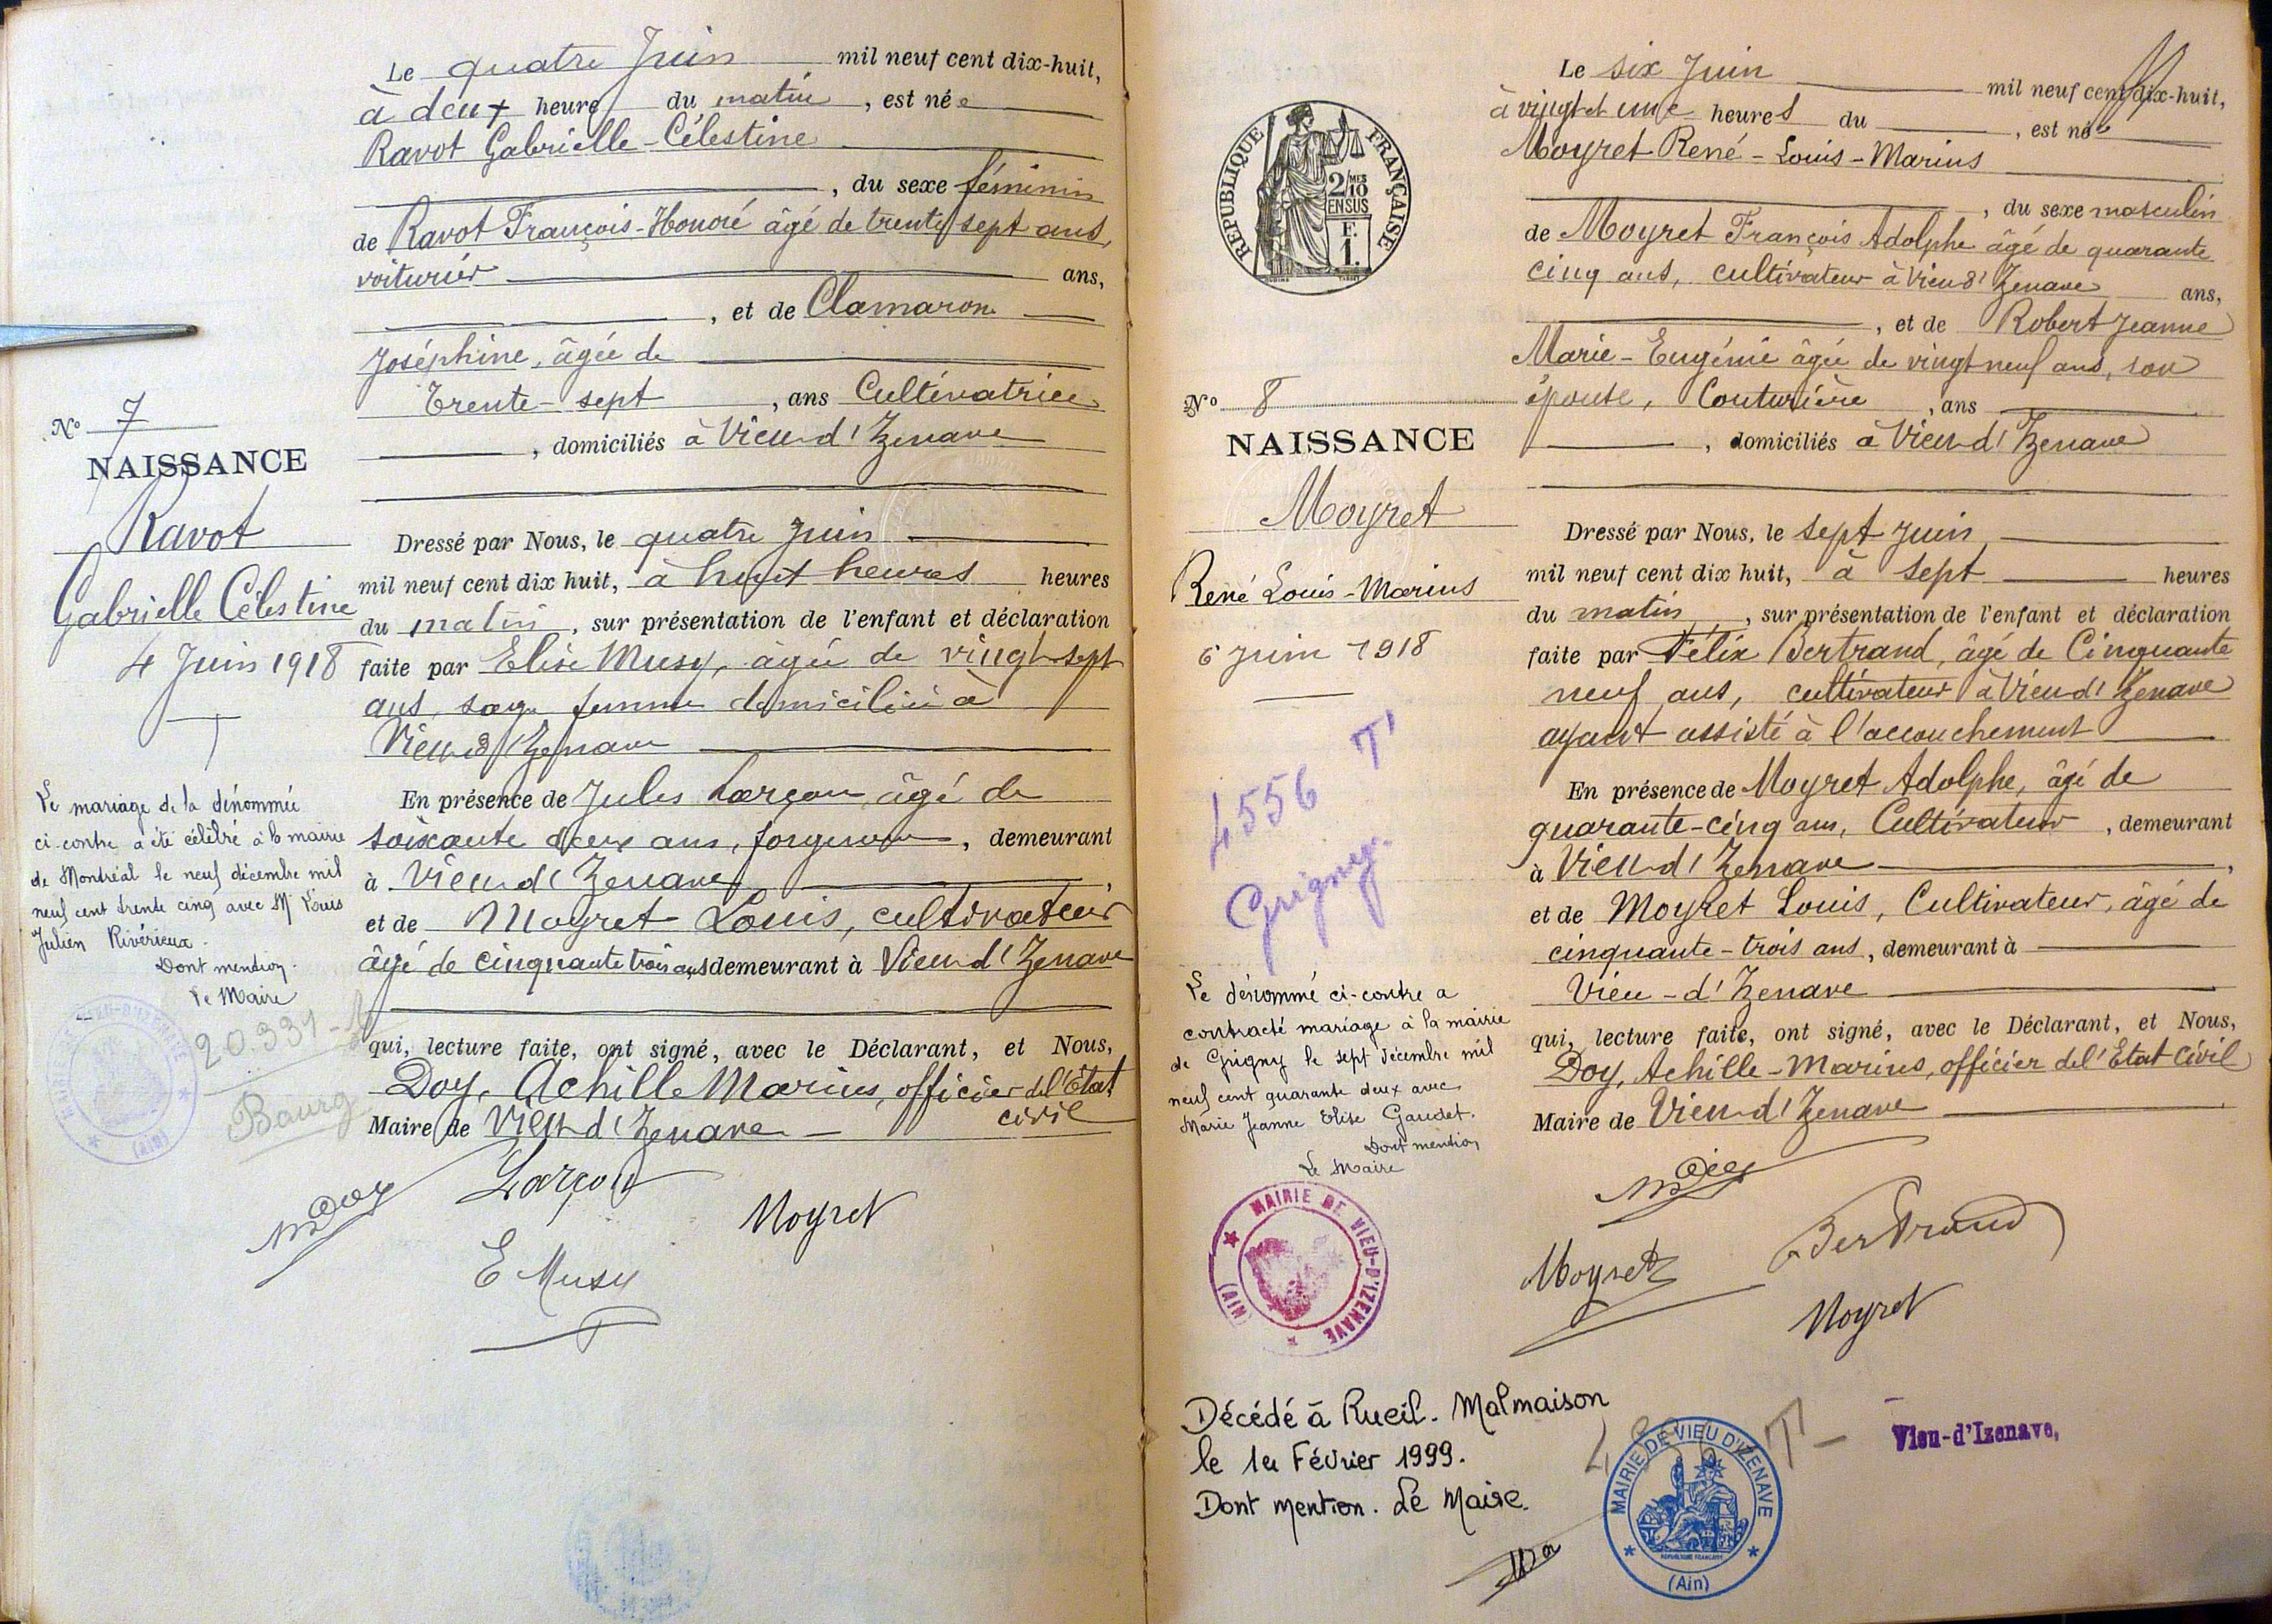 Le quatre Juin mil neuf cent dix-huit,
à deux heures du matin, est née
Ravot Gabrielle-Célestine
, du sexe féminin
de Ravot François-Honoré âgé de trente sept ans,
voiturier ans,
, et de Clamaron
Joséphine, âgée de
Trente-sept, ans Cultivatrice
, domiciliés à Vieu d'Izenave
Dressé par Nous, le quatre Juin
mil neuf cent dix huit, à huit heures heures
du matin, sur présentation de l'enfant et déclaration
faite par Elise Musy, âgée de vingt sept
ans, sage femme domiciliée à
Vieu d'Izenave
En présence de Jules Larçon, âgé de
soixante deux ans, forgeron, demeurant
à Vieu d'Izenave,
et de Moyret Louis, cultivateur
âgé de cinquante trois ans demeurant à Vieu d'Izenave
qui, lecture faite, ont signé, avec le Déclarant, et Nous,
Doy, Achille Marius, officier de l'Etat
civil
Maire de Vieu d'Izenave
Doy
Larçon
Moyret
E Musy
No 7
NAISSANCE
Ravot
Gabrielle Célestine
4 Juin 1918
Le mariage de la dénommée
ci-contre a été célébré à la mairie
de Montréal le neuf décembre mil
neuf cent trente cinq avec Mr Louis
Julien Rivérieux.
Dont mention.
Le Maire
20.331
Bourg
RÉPUBLIQUE FRANÇAISE
2/10 MES
EN SUS
F.
1.
No 8
NAISSANCE
Moyret
René Louis-Marius
6 Juin 1918
4556 T'
Grigny.
Le dénommé ci-contre a
contracté mariage à la mairie
de Grigny le sept décembre mil
neuf cent quarante deux avec
Marie Jeanne Elise Gaudet.
Dont mention
Le Maire
MAIRIE DE VIEU-D'IZENAVE
(AIN)
Décédé à Rueil-Malmaison
le 1er Février 1999.
Dont mention. Le Maire.
Le six Juin mil neuf cent dix-huit,
à vingt et une heures du, est né
Moyret René-Louis-Marius
, du sexe masculin
de Moyret François Adolphe âgé de quarante
cinq ans, cultivateur à Vieu d'Izenave ans,
, et de Robert Jeanne
Marie-Eugénie âgée de vingt neuf ans, son
épouse, Couturière, ans
, domiciliés à Vieu d'Izenave
Dressé par Nous, le sept Juin
mil neuf cent dix huit, à sept heures
du matin, sur présentation de l'enfant et déclaration
faite par Félix Bertrand, âgé de Cinquante
neuf ans, cultivateur à Vieu d'Izenave
ayant assisté à l'accouchement
En présence de Moyret Adolphe, âgé de
quarante-cinq ans, Cultivateur, demeurant
à Vieu d'Izenave,
et de Moyret Louis, Cultivateur, âgé de
cinquante-trois ans, demeurant à
Vieu-d'Izenave
qui, lecture faite, ont signé, avec le Déclarant, et Nous,
Doy, Achille-Marius, officier de l'Etat Civil
Maire de Vieu d'Izenave
Doy
Bertrand
Moyret
Moyret
Vieu-d'Izenave,
MAIRIE DE VIEU D'IZENAVE
RÉPUBLIQUE FRANÇAISE
(Ain)